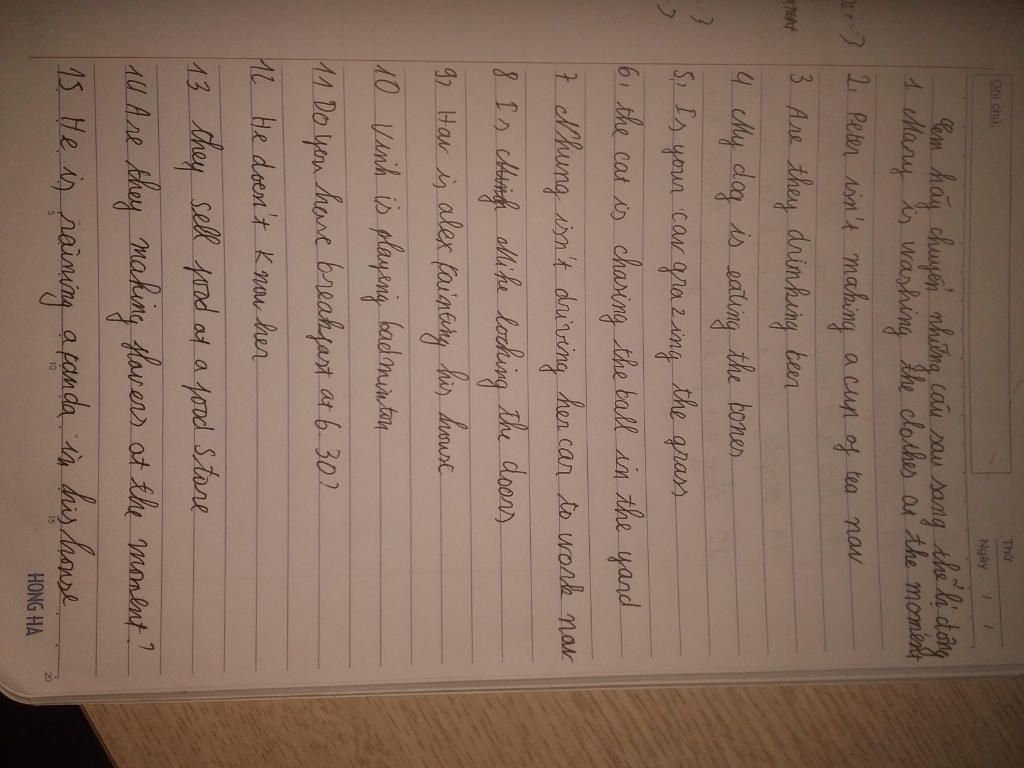 Ghi chú:
Thứ
Ngày / /
Em hãy chuyển những câu sau sang thể bị động
1 Mary is washing the clothes at the moment
2. Peter isn't making a cup of tea now
3 Are they drinking tea
4 My dog is eating the bones
5, Is your car grazing the grass
6, the cat is chasing the ball in the yard
7 Nhung isn't driving her car to work now
8 Is Mike locking the doors
9, How is alex paineng his house
10 Vinh is playeng badminton
11 Do you have breakfast at 6.30?
12 He doesn't know her
13 they sell food at a food store
14 Are they making flovers at the moment?
15 He is raining a panda in his house
5 10 15 20
HONG HA